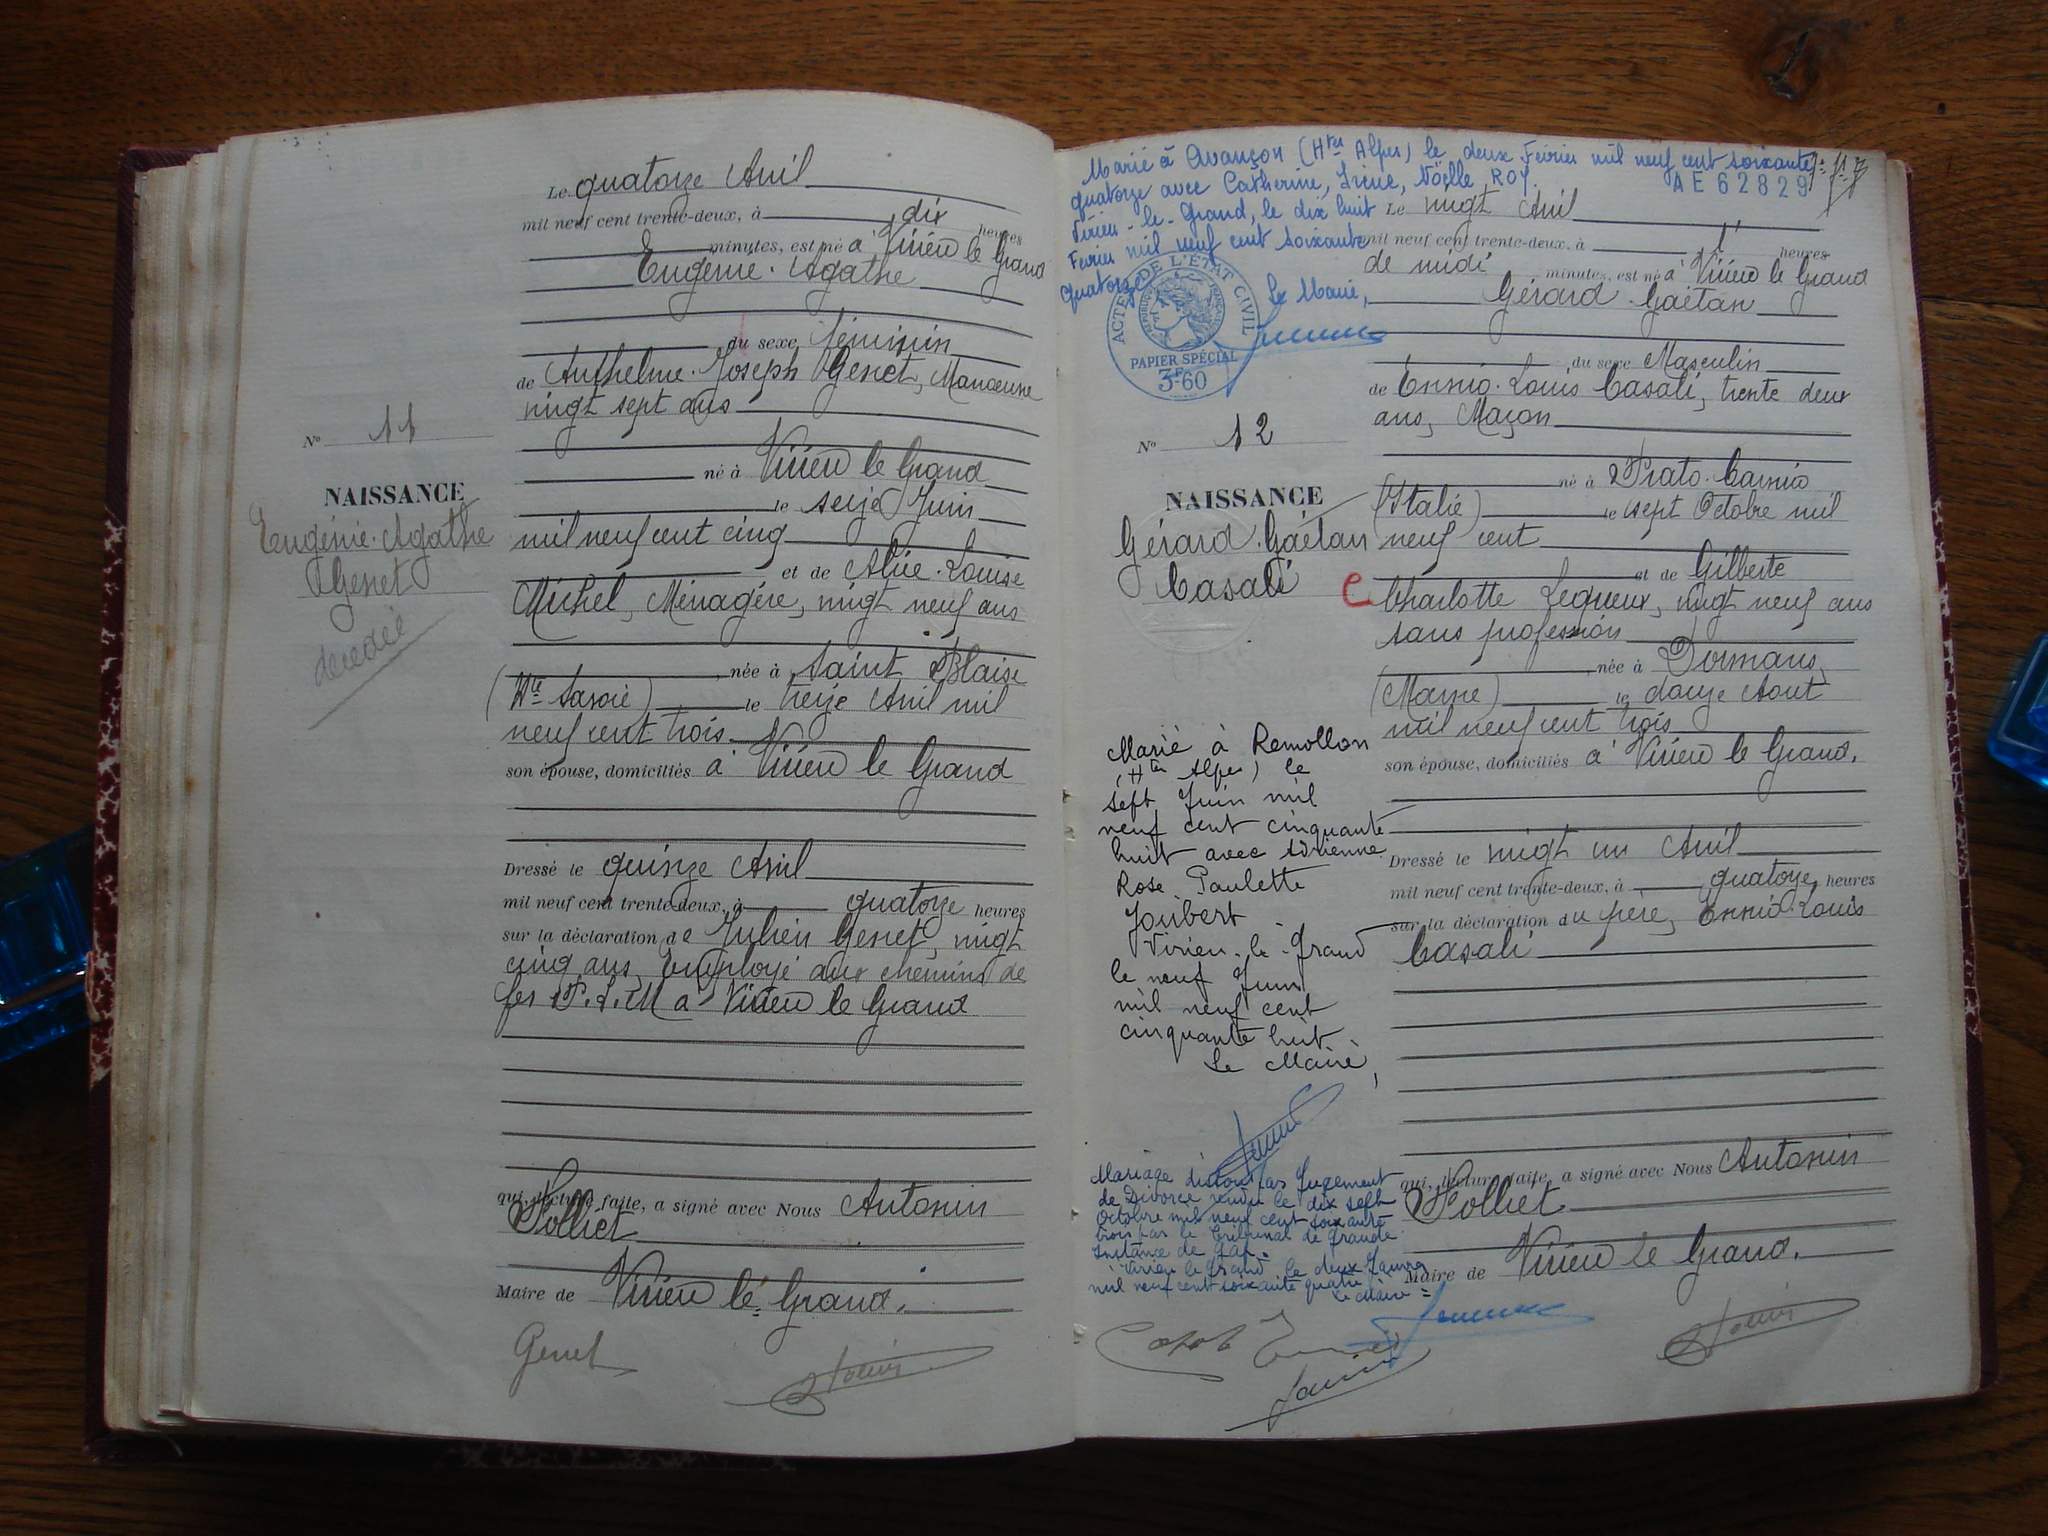 Le quatorze Avril
mil neuf cent trente-deux, à dix heures
minutes, est né à Virieu le Grand
Eugénie. Agathe
du sexe féminin
de Anthelme. Joseph Genet, Manœuvre
vingt sept ans
né à Virieu le Grand
le seize Juin
mil neuf cent cinq
et de Alice. Louise
Michel, Ménagère, vingt neuf ans
née à Saint Blaise
(Hte Savoie) le treize Avril mil
neuf cent trois
son épouse, domiciliés à Virieu le Grand
Dressé le quinze Avril
mil neuf cent trente-deux, à quatorze heures
sur la déclaration de Julien Genet, vingt
cinq ans, employé aux chemins de
fer P.L.M à Virieu le Grand
qui, lecture faite, a signé avec Nous Antonin
Polliet
Maire de Virieu le Grand.
Genet
No 11
NAISSANCE
Eugénie. Agathe
Genet
décédée
Marié à Avançon (Htes Alpes) le deux Février mil neuf cent soixante
quatorze avec Catherine, Irène, Noëlle ROY.
AE 62829
Virieu-le-Grand, le dix huit
Février mil neuf cent soixante
quatorze
Le Maire,
ACTES DE L'ÉTAT CIVIL
RÉPUBLIQUE FRANÇAISE
PAPIER SPÉCIAL
3F60
No 12
NAISSANCE
Gérard. Gaétan
Casali
C
Le vingt Avril
mil neuf cent trente-deux, à heures
de midi minutes, est né à Virieu le Grand
Gérard Gaétan
du sexe Masculin
de Ennio. Louis Casali, trente deux
ans, Maçon
né à Prato. Carnico
(Italie) le sept Octobre mil
neuf cent
et de Gilberte
Charlotte Lequeux, vingt neuf ans
sans profession
née à Dormans,
(Marne) le douze Aout
mil neuf cent trois
son épouse, domiciliés à Virieu le Grand.
Dressé le vingt un Avril
mil neuf cent trente-deux, à quatorze heures
sur la déclaration du père, Ennio. Louis
Casali
qui, lecture faite, a signé avec Nous Antonin
Polliet
Maire de Virieu le Grand.
Marié à Remollon
(Htes Alpes) le
sept Juin mil
neuf cent cinquante
huit avec Adrienne
Rose Paulette
Joubert
Virieu-le-Grand
le neuf Juin
mil neuf cent
cinquante huit
Le Maire,
Mariage dissout par Jugement
de Divorce rendu le dix sept
Octobre mil neuf cent soixante
trois par le Tribunal de Grande
Instance de Gap.
Virieu le Grand le deux Janvier
mil neuf cent soixante quatre
Le Maire